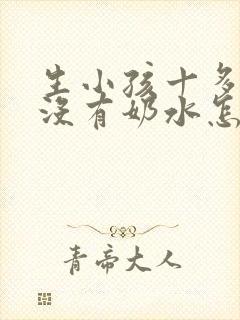 生小孩十多
没有奶水怎
青帝大人